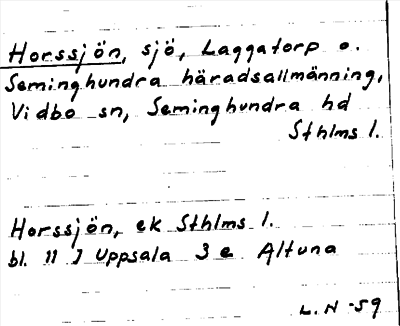 Horssjön, sjö, Laggatorp o.
Seminghundra häradsallmänning,
Vidbo sn, Seminghundra hd
Sthlms l.
Horssjön, ek Sthlms l.
bl. 11 I Uppsala 3 e Altuna
L.N -59